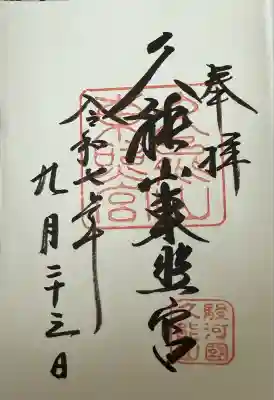 奉拝
久能山東照宮
令和七年
九月二十三日
久能山
東照宮
駿河国
久能山